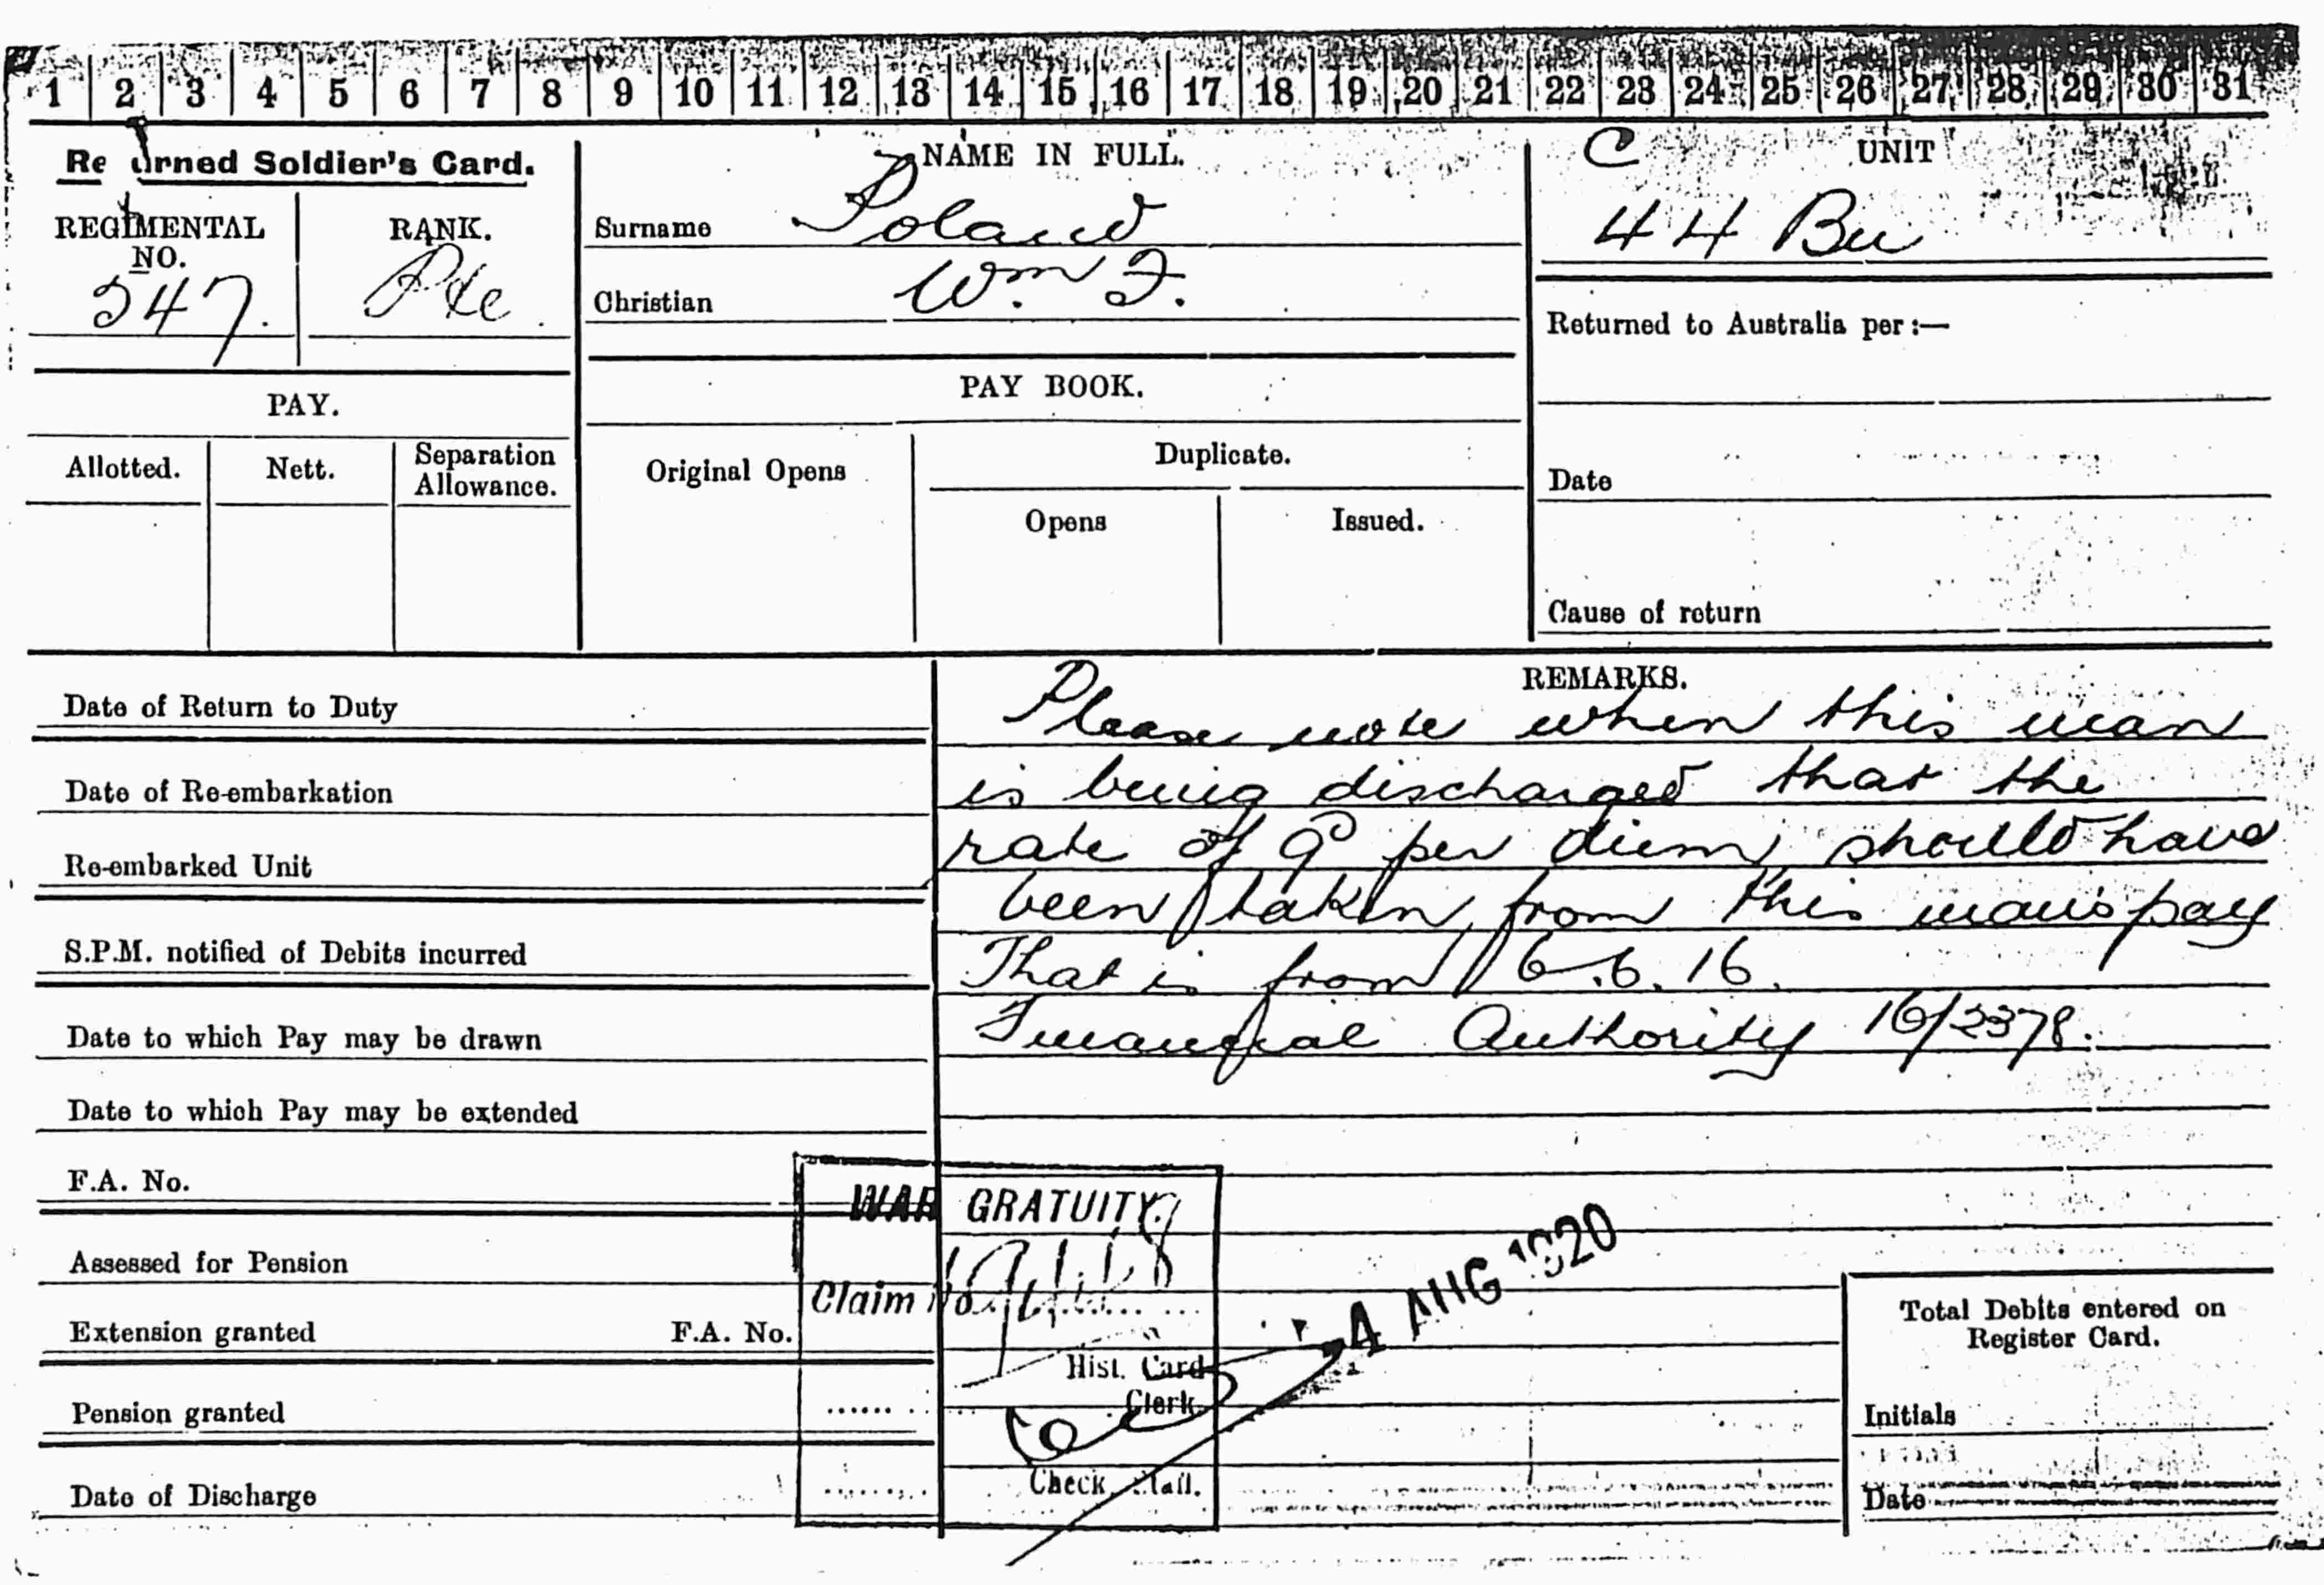 1 2 3 4 5 6 7 8 9 10 11 12 13 14 15 16 17 18 19 20 21 22 23 24 25 26 27 28 29 30 31
Returned Soldier's Card.
REGIMENTAL NO.
547.
RANK.
Pte
NAME IN FULL.
Surname Poland
Christian Wm F.
C UNIT
44 Bn
Returned to Australia per:—
Date
Cause of return
PAY.
Allotted. Nett. Separation Allowance.
PAY BOOK.
Original Opens
Duplicate.
Opens Issued.
Date of Return to Duty
Date of Re-embarkation
Re-embarked Unit
S.P.M. notified of Debits incurred
Date to which Pay may be drawn
Date to which Pay may be extended
F.A. No.
Assessed for Pension
Extension granted F.A. No.
Pension granted
Date of Discharge
REMARKS.
Please note when this man
is being discharged that the
rate of 9d per diem should have
been taken from this man's pay
That is from 6.6.16.
Financial Authority 16/2378.
WAR GRATUITY.
Claim No.
Hist. Card
Clerk.
Check
4 AUG 1920
Total Debits entered on
Register Card.
Initials
Date